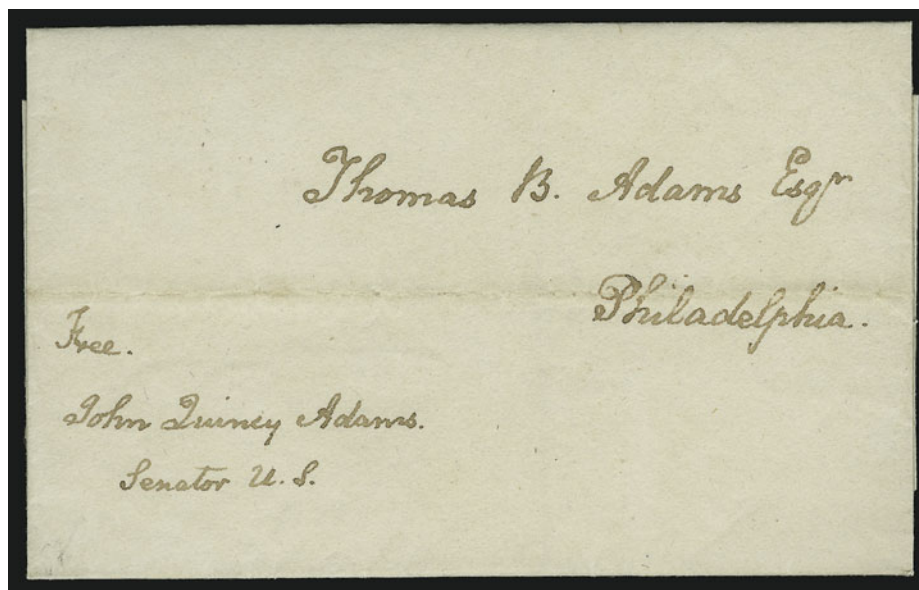 Thomas B. Adams Esqr
Philadelphia.
Free.
John Quincy Adams.
Senator U. S.